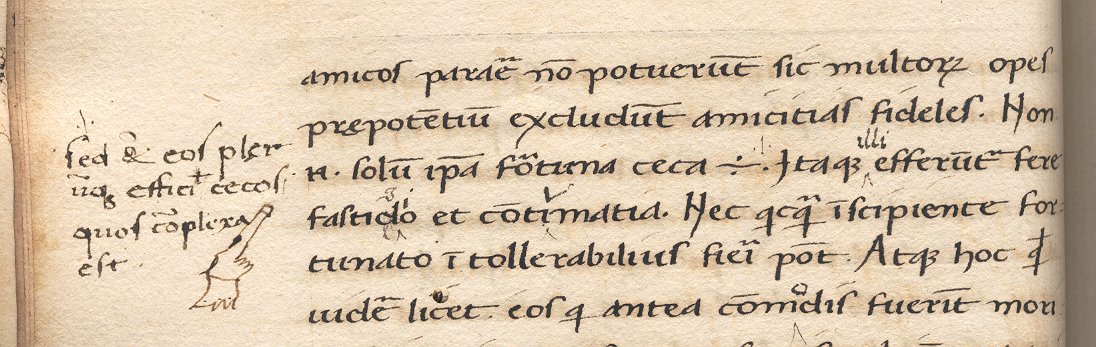 sed & eos pler
ūqȝ efficit cecos
quos cōplexa
est.
amicos parae᷑ nō potuerūt sic multorꝝ opes
prępotētiū excludūt amicitias fideles. Non
n. solū ip̄a fortuna ceca ÷. Itaqꝫ illi efferūtᷣ fere
fastidio et cōtumatia. Nec qicq̄ īscipiente for-
tunato ītollerabilius fieri pōt. Atqꝫ hoc q̄
uidē licet eos qi antea cōmodis fuerīt mori